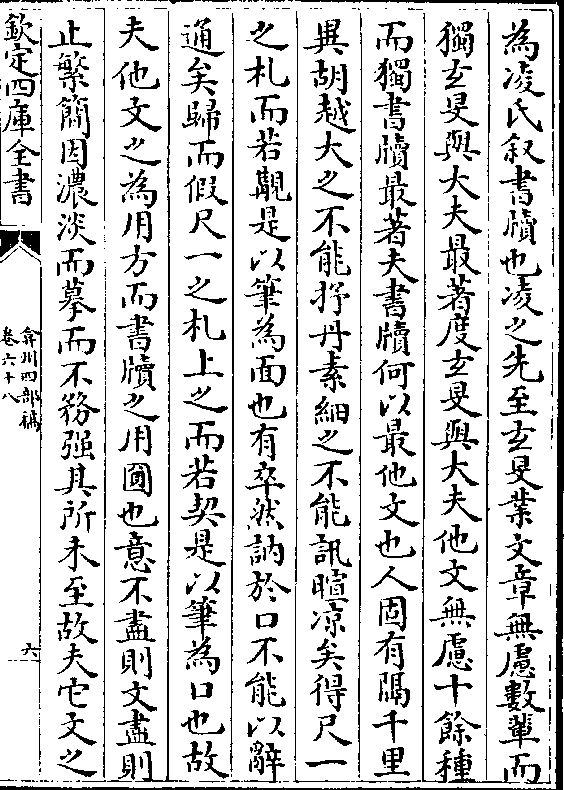 為凌氏叙書牘也凌之先至玄旻業文章無慮數輩而
獨玄旻與大夫最著度玄旻與大夫他文無慮十餘種
而獨書牘最著夫書牘何以最他文也人固有隔千里
異胡越大之不能抒丹素細之不能訊暄凉矣得尺一
之札而若覿是以筆為面也有卒然訥於口不能以辭
通矣歸而假尺一之札上之而若契是以筆為口也故
夫他文之為用方而書牘之用圎也意不盡則文盡則
止繁簡因濃淡而摹而不務强其所未至故夫它文之
欽定四庫全書
弇州四部稿
卷六十八
六